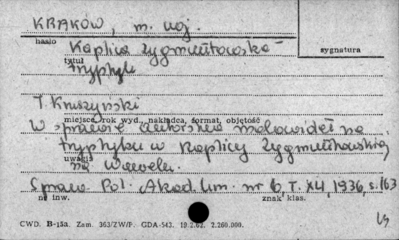 KRAKÓW, m. woj.
hasło
Kaplica Zygmuntowska -
tytuł
tryptyk
sygnatura
T. Kruszyński
miejsce, rok wyd., nakładca, format, objętość
W sprawie autorstwa malowideł na
tryptyku w Kaplicy Zygmuntowskiej
uwagi
na Wawelu.
Spraw. Pol. Akad. Um. nr 6, T. XLI, 1936, s. 163
nr inw.
znak klas.
CWD. B-15a. Zam. 363/ZW/F. GDA-543. 19.2.62. 7.260.000.